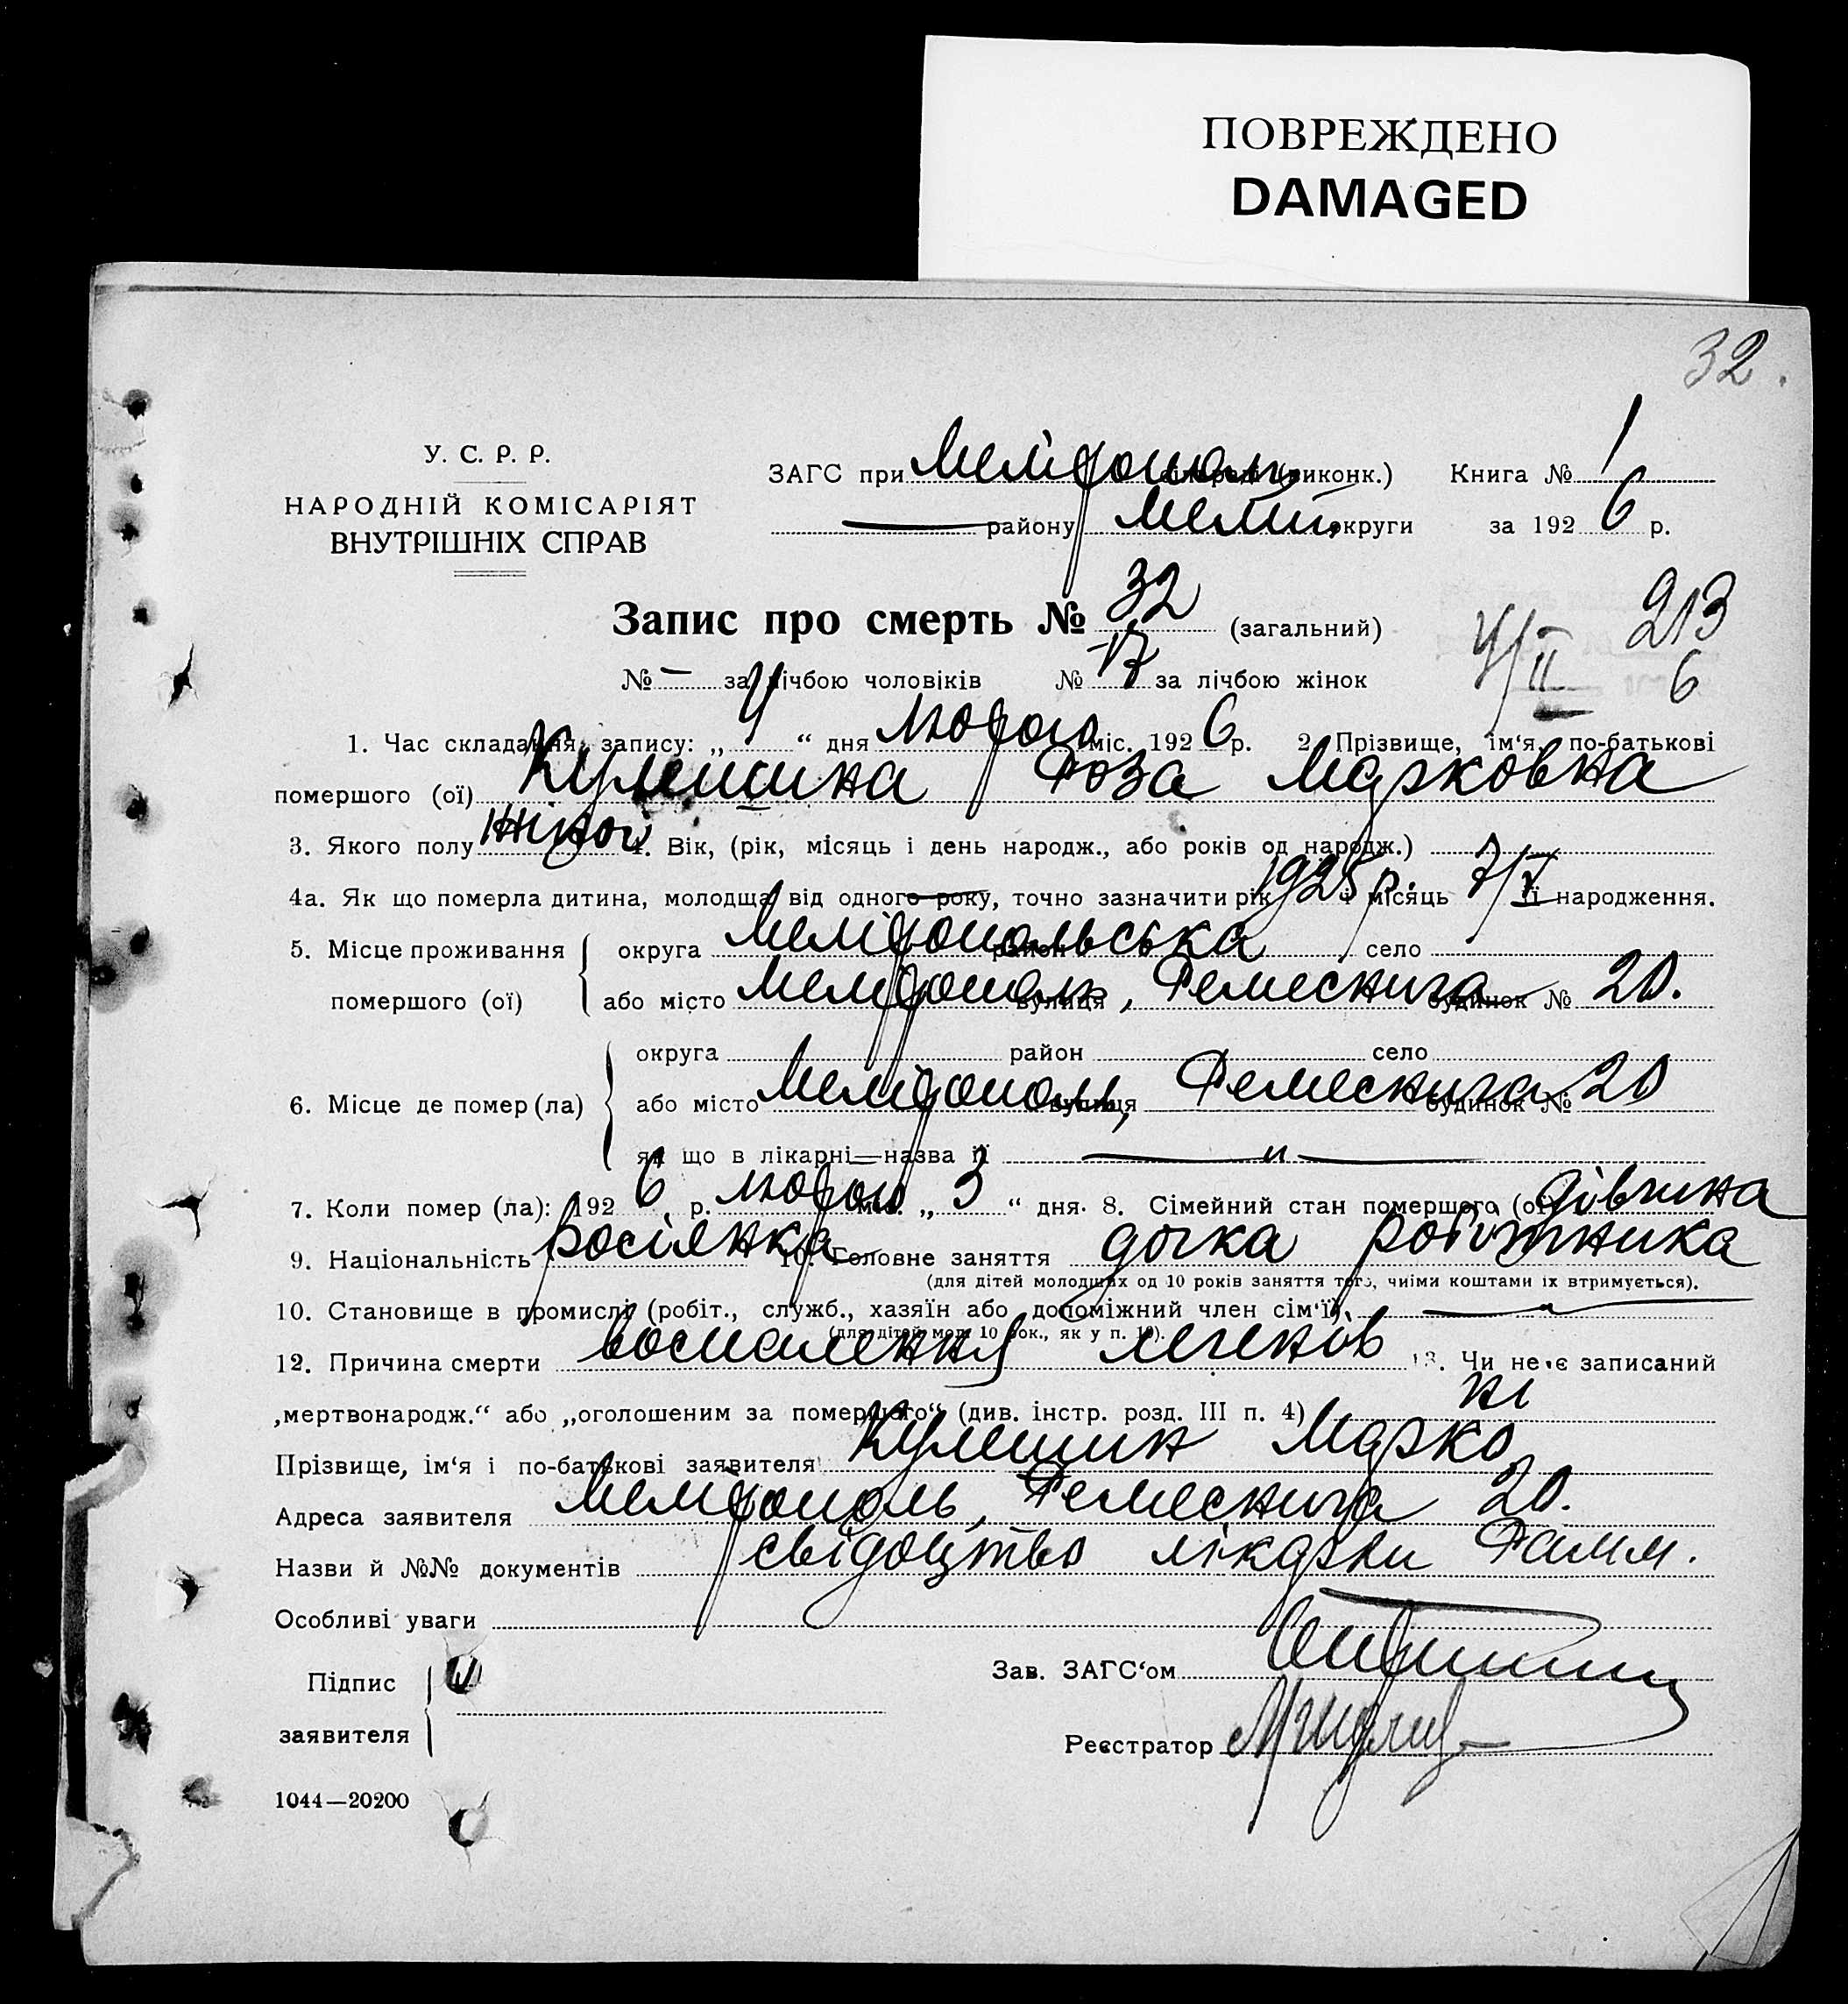 ПОВРЕЖДЕНО
DAMAGED
32.
У. С. Р. Р.
НАРОДНІЙ КОМІСАРІЯТ
ВНУТРІШНІХ СПРАВ
ЗАГС при Мелітополь (виконк.) Книга № 1
— району Меліт. округи за 192 6 р.
Запис про смерть № 32 (загальний)
№ — за лічбою чоловіків № 17 за лічбою жінок
4/II 213
6
1. Час складання запису: „ 4 “ дня лютого міс. 192 6 р. 2. Прізвище, ім‘я, по-батькові
помершого (ої) Кулешина Роза Марковна
3. Якого полу жіної 4. Вік, (рік, місяць і день народж., або років од народж.)
4а. Як що померла дитина, молодща від одного року, точно зазначити рік 1925 р. і місяць 7/V її народження.
5. Місце проживання округа Мелітопольська район село
помершого (ої) або місто Мелітополь, вулиця Ремеснича будинок № 20.
округа район село
6. Місце де помер (ла) або місто Мелітополь, вулиця Ремеснича будинок № 20
як що в лікарні—назва її — „ —
7. Коли помер (ла): 192 6 р. лютого міс. „ 3 “ дня. 8. Сімейний стан помершого (ої) дівчина
9. Національність росіянка 10. Головне заняття дочка робітника
(для дітей молодших од 10 років заняття того, чиїми коштами їх втримується).
10. Становище в промислі (робіт., служб., хазяїн або допоміжний член сім‘ї) — „ —
(для дітей мол. 10 рок., як у п. 10).
12. Причина смерти воспалення легенів 13. Чи не є записаний
„мертвонародж.“ або „оголошеним за помершого“ (див. інстр. розд. III п. 4) ні
Прізвище, ім‘я і по-батькові заявителя Кулешин Марко
Адреса заявителя Мелітополь, Ремеснича 20.
Назви й №№ документів свідоцтво лікарки Рамм.
Особливі уваги
Підпис
заявителя
Зав. ЗАГС‘ом
Реєстратор
1044—20200